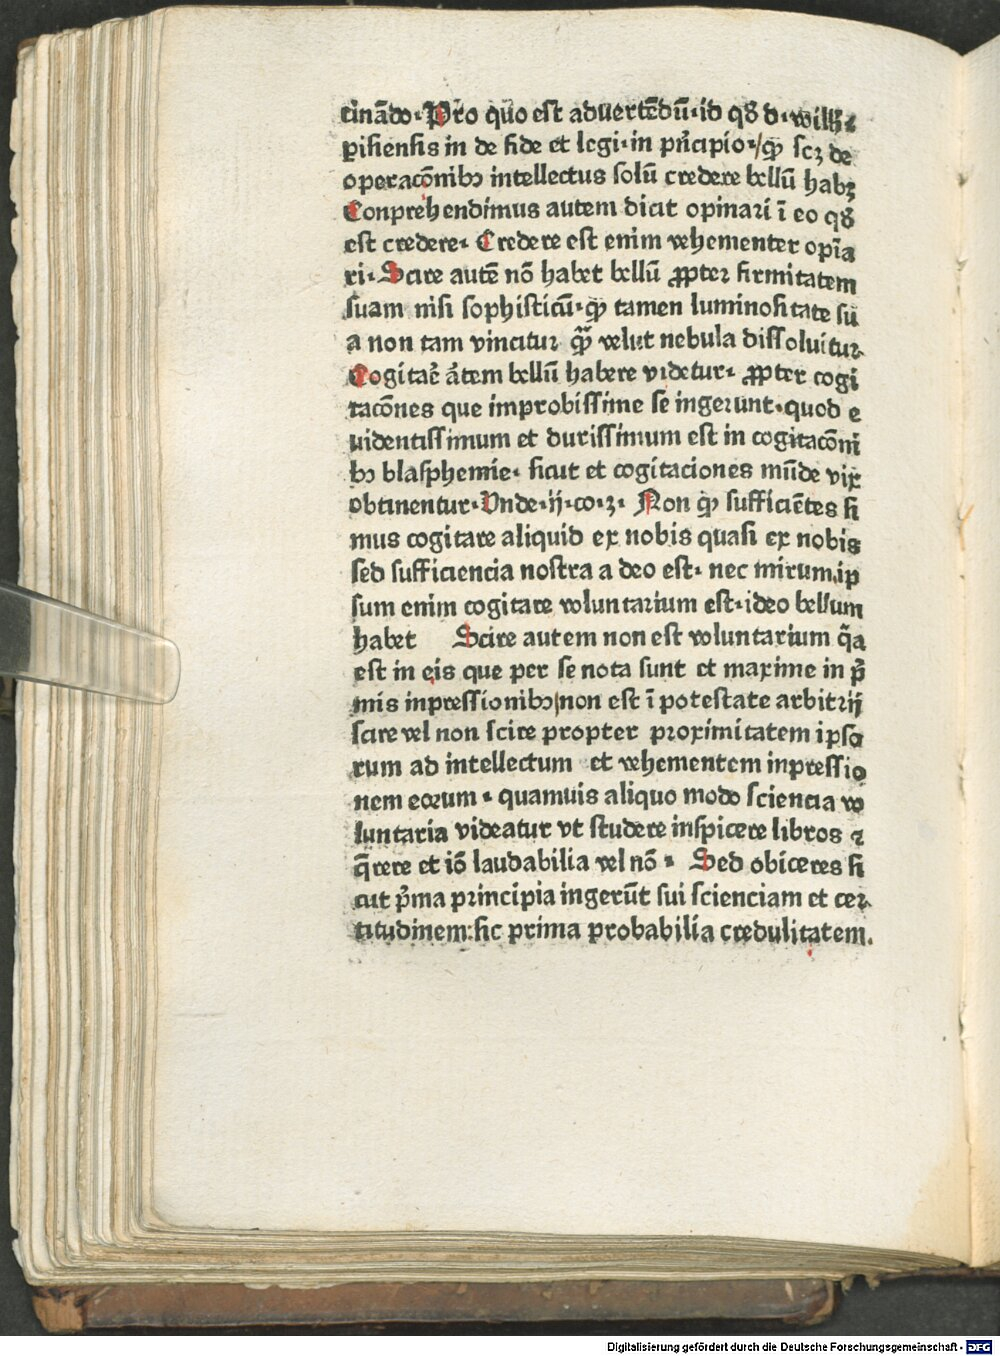 tinādo. Pro quo est aduertēdū. id qď d. wilħ.
ꝑisiensis in de fide et legi. in pn̄cipio. / ꝙ scꝫ de
operacōnibꝫ intellectus solū credere bellū habꝫ
Conprehendimus autem dicit opinari ī eo qď
est credere. Credere est enim vehementer opīa
ri. Scire autē nō habet bellū ꝓpter firmitatem
suam nisi sophisticū. ꝙ tamen luminositate su
a non tam vincitur ꝙ̄ velut nebula dissoluitur
Cogitar̄ āt̄em bellū habere videtur. ꝓpter cogi
tacōnes que improbissime se ingerunt. quod e
uidentissimum et durissimum est in cogitacōni
bꝫ blasphemie. sicut et cogitaciones mūde vix
obtinentur. Vnde. ij. co. 3. Non ꝙ sufficiētes si
mus cogitare aliquid ex nobis quasi ex nobis
sed sufficiencia nostra a deo est. nec mirum. ip
sum enim cogitare voluntarium est. ideo bellum
habet Scire autem non est voluntarium q̄a
est in eis que per se nota sunt et maxime in p̄
mis inpressionibꝫ / non est ī potestate arbitrij
scire vel non scire propter proximitatem ipso
rum ad intellectum et vehementem inpressio
nem eorum. quamuis aliquo modo sciencia vo
luntaria videatur vt studere inspicere libros ⁊
q̄rere et iō laudabilia vel nō. Sed obiceres si
cut p̄ma principia ingerūt sui scienciam et cer
titudinem: sic prima probabilia credulitatem.
Digitalisierung gefördert durch die Deutsche Forschungsgemeinschaft - DFG